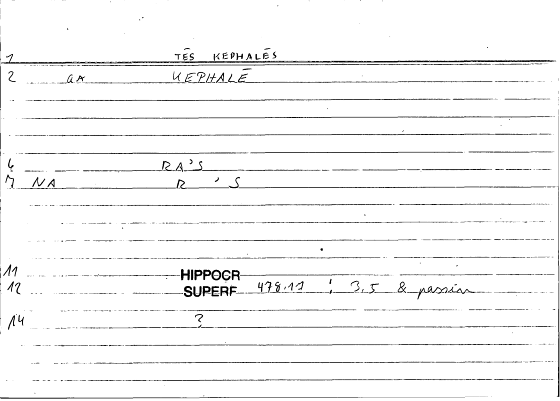 1 TĒS KEPHALĒS
2 GA KEPHALĒ
6 RA'S
7 NA R ' S
11 HIPPOCR
12 SUPERF 478.11 ; 3.5 & passim
14 ?